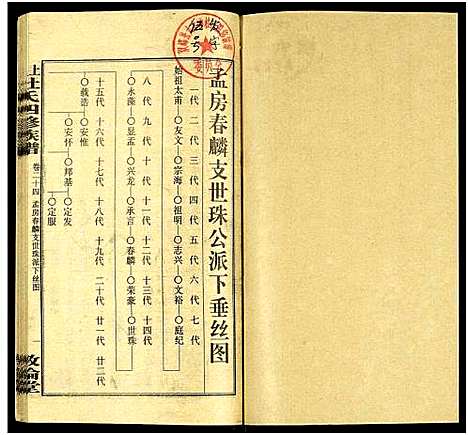 孟房春麟支世珠公派下垂丝图
一代 二代 三代 四代 五代 六代 七代
始祖太甫—〇友文—〇宗海—〇祖明—〇志兴—〇文裕—〇庭纪
八代 九代 十代 十一代 十二代 十三代 十四代
〇永藻—〇显孟—〇兴龙—〇承言—〇春麟—〇荣豪—〇世珠
十五代 十六代 十七代 十八代 十九代 二十代 廿一代 廿二代
〇载浩—〇安惟
〇安怀—〇邦基—〇定发
〇定服
杜氏四修族谱
卷二十四 孟房春麟支世珠派下丝图
一
敦伦堂
委员会